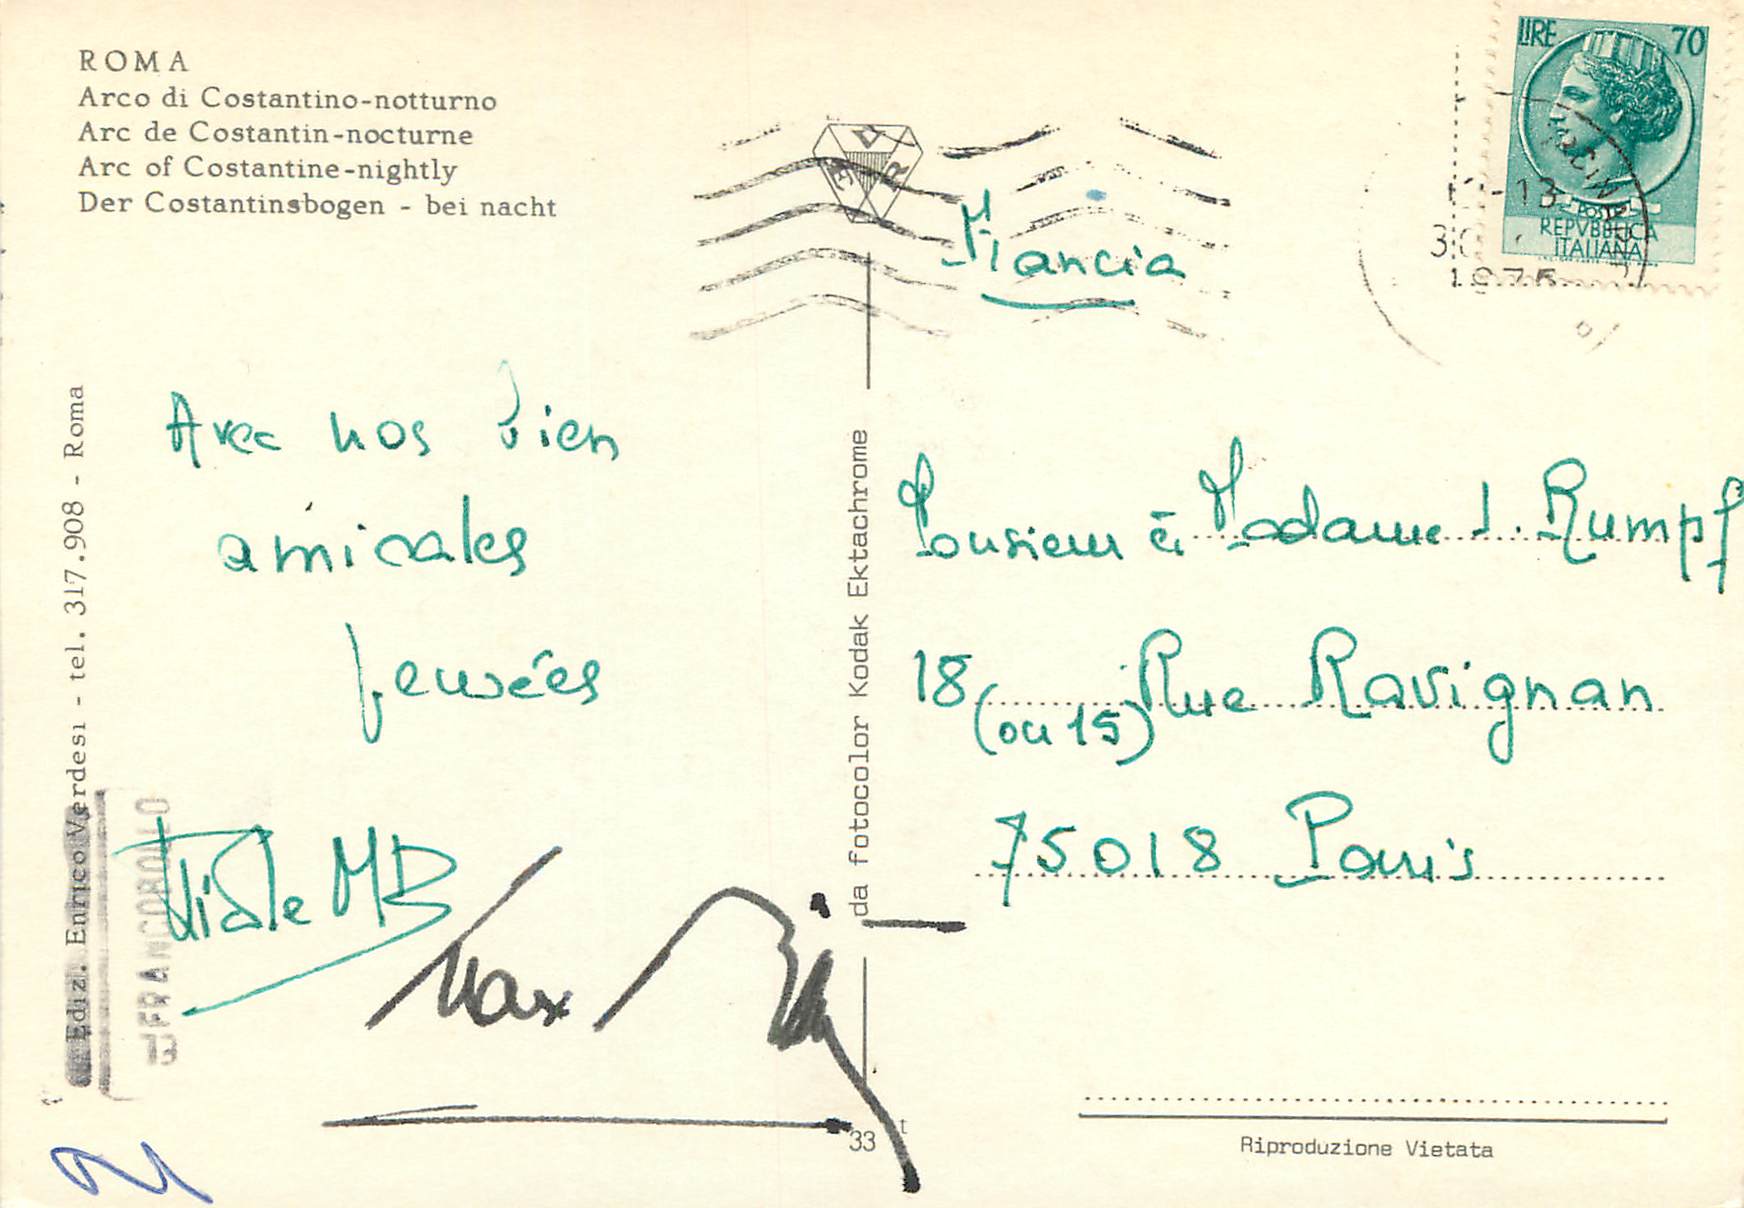 ROMA
Arco di Costantino-notturno
Arc de Costantin-nocturne
Arc of Costantine-nightly
Der Costantinsbogen - bei nacht
LIRE 70
POSTE
REPVBBLICA
ITALIANA
-13
1975
Francia
Avec nos bien
amicales
pensées
Monsieur & Madame J. Rumpf
18 (ou 15) Rue Ravignan
75018 Paris
MB
Max
Ediz. Enrico Verdesi - tel. 317.908 - Roma
FRANCOBOLLO
da fotocolor Kodak Ektachrome
33
t
Riproduzione Vietata